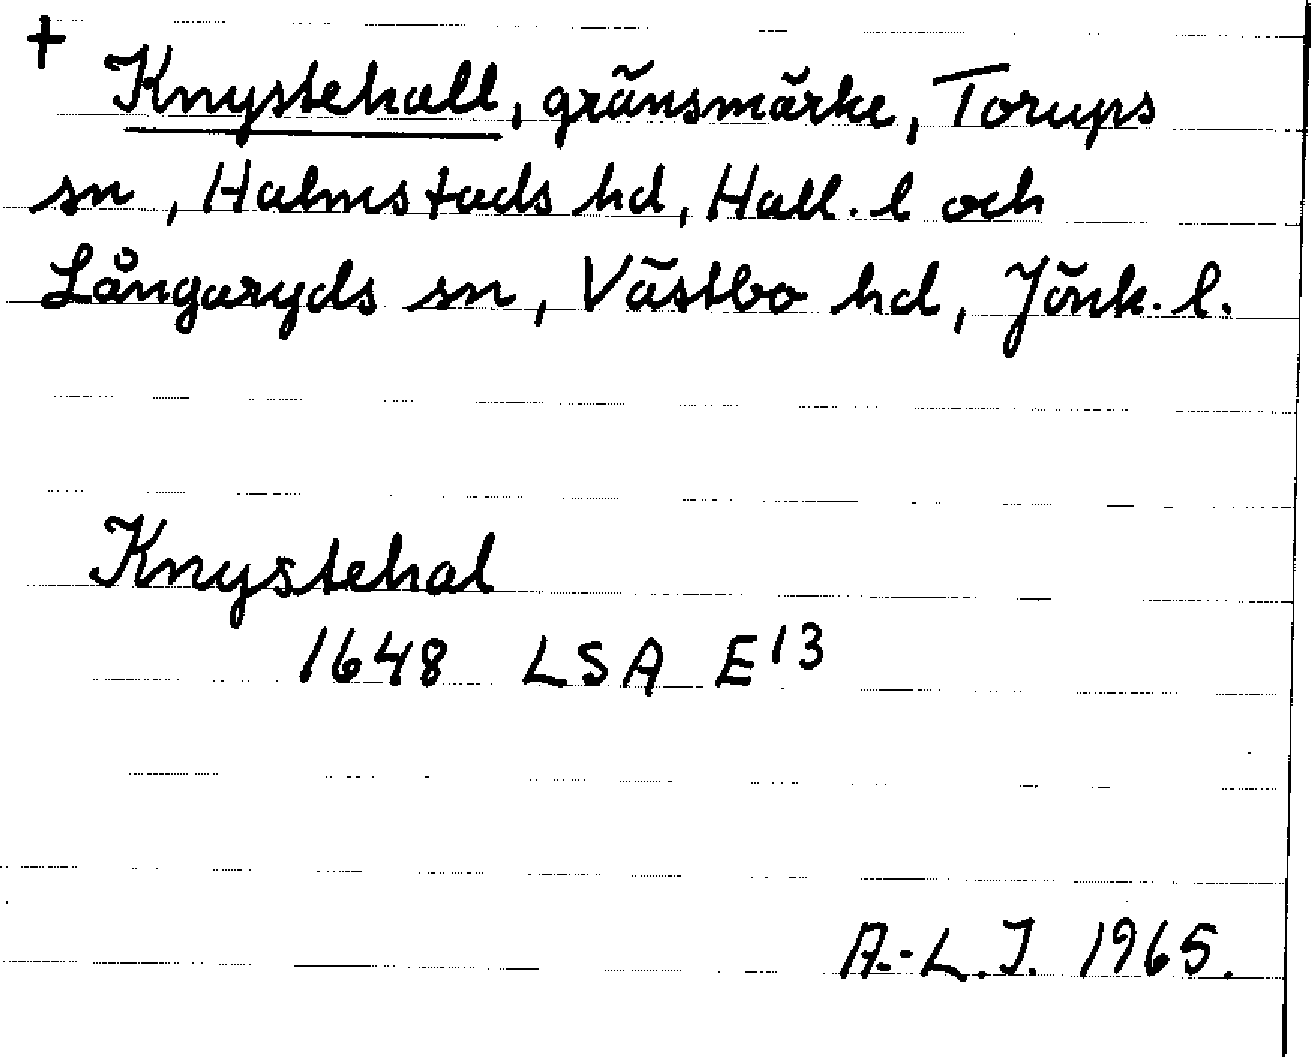 + Knystehall, gränsmärke, Torups
sn, Halmstads hd, Hall. l och
Långaryds sn, Västbo hd, Jönk. l.
Knystehal
1648 LSA E13
A.-L.J. 1965.